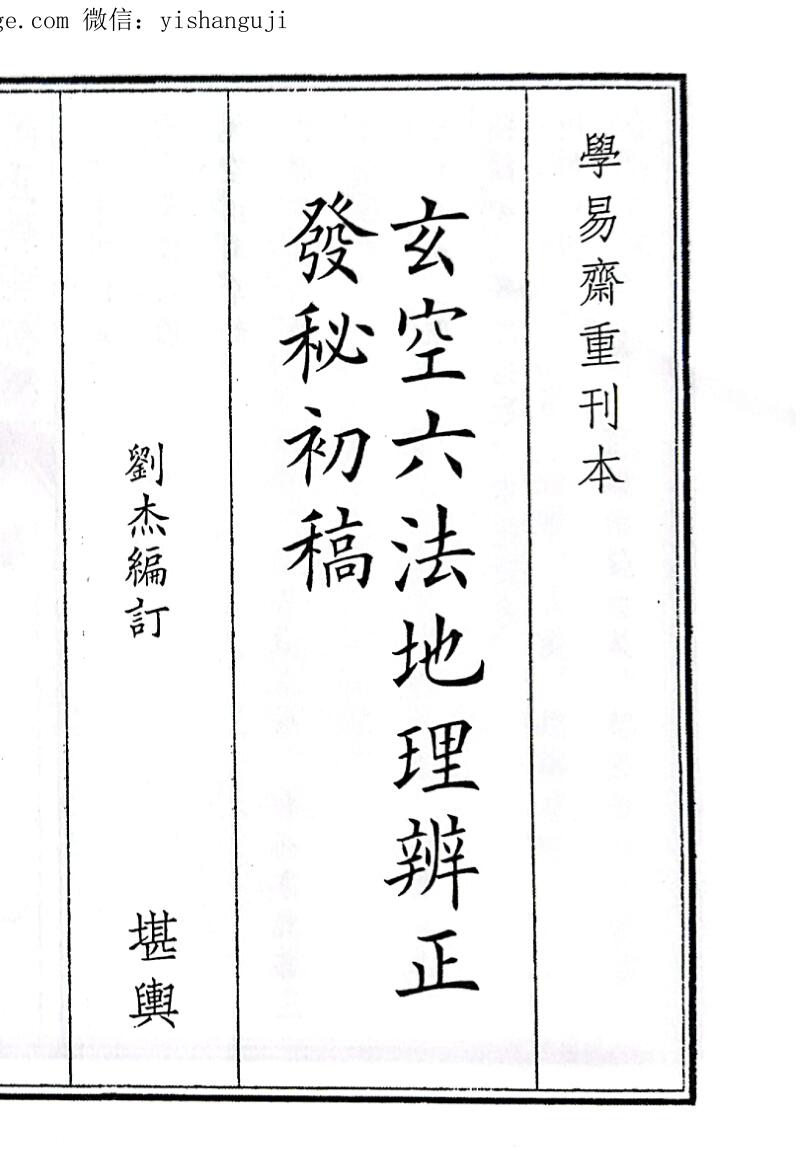 ge.com 微信: yishanguji
學易齋重刊本
玄空六法地理辨正
發秘初稿
劉杰編訂
堪輿